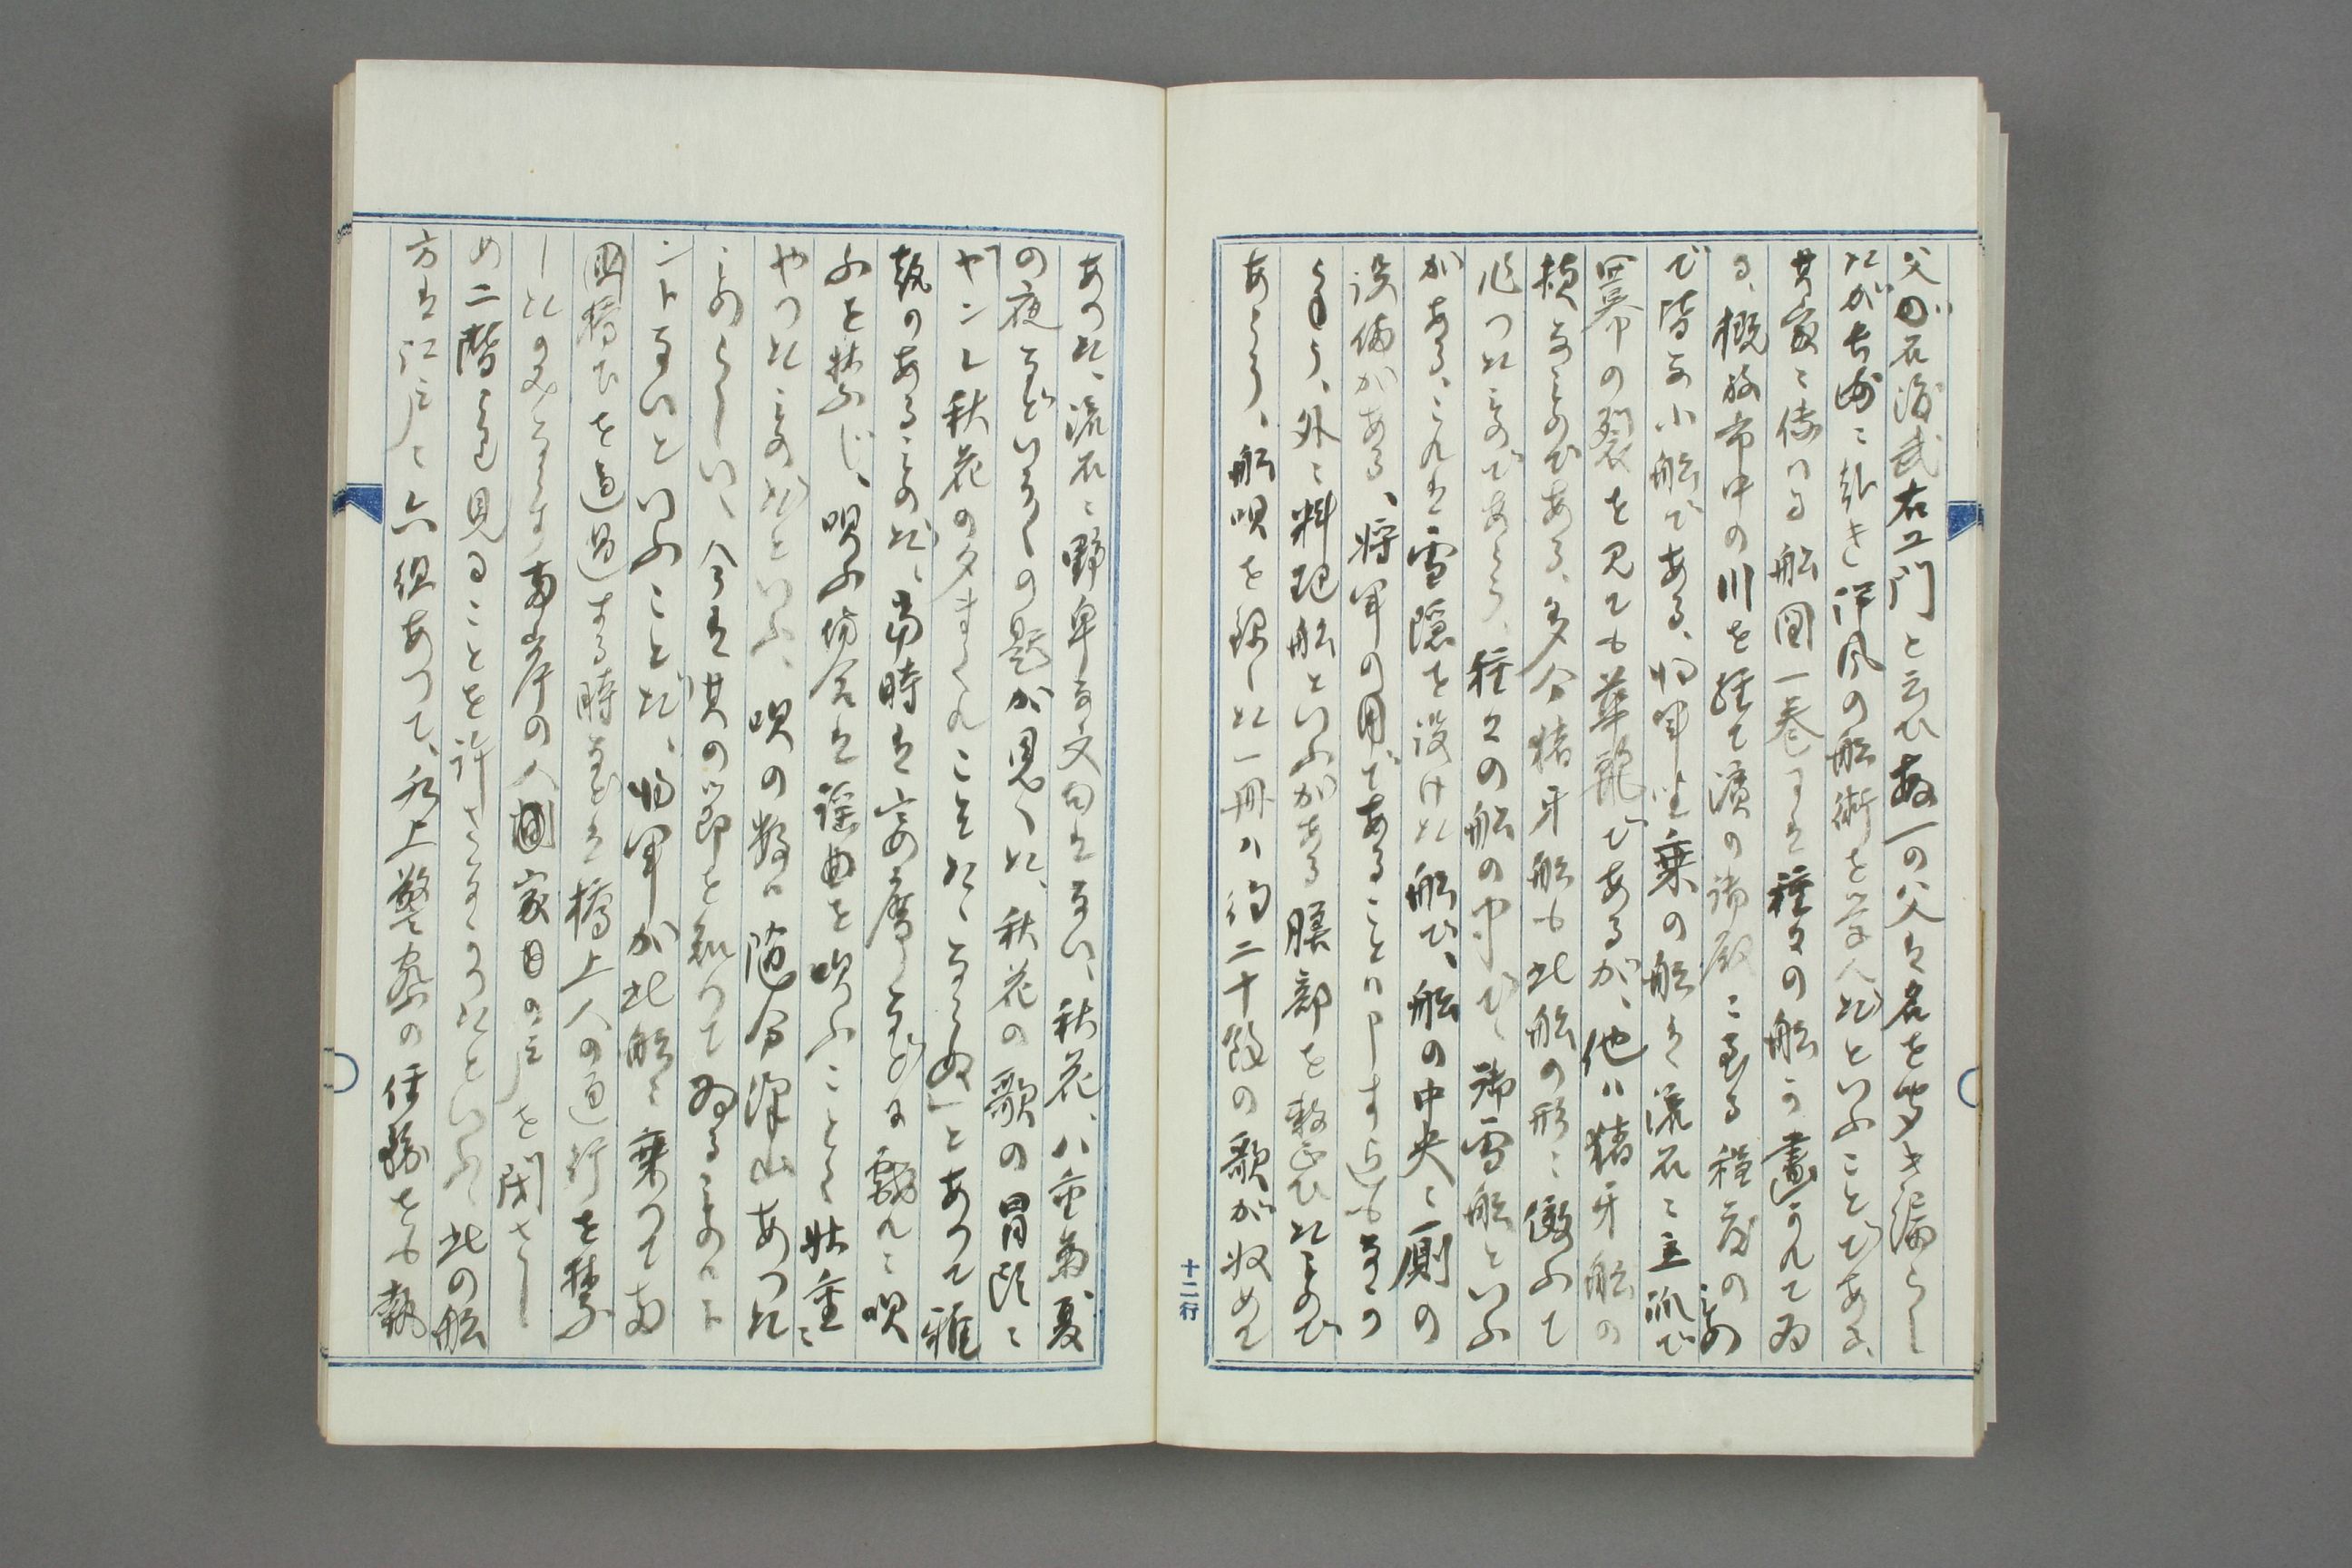 父が石渡武右エ門と云ひ故一の父は名を聞き漏らし
たが長崎に赴き伊風の船術を学んだといふことである、
其家に傳はる船図一巻には種々の船が畫かれてゐ
る、概放市中の川を経て濱の御殿に至る程度の
で皆な小船である、将軍坐乗の船は流石に立派で
幕の裂を見ても華麗であるが、他ハ猪牙船の
様なものである、多分猪牙船も此船の形に倣ふて
作つたものであらう、種々の船の中で、御雪船といふ
がある、これは雪隠を設けた船で、船の中央に厠の
設備がある、将軍の用であることハ申す迄もなか
らう、外に料理船といふがある膳部を整ひたもので
あらう、船唄を録した一冊ハ約二十餘の歌が収めて
十二行
あつた、流石に野卑な文句はない、秋花、八重菊、夏
の夜などいふの題が見へた、秋花の歌の冒頭に
「ヤンレ秋花の夕まくれこそたへならぬ」とあつて雅
致のあるものだ、当時は安摩しなどは戯れに唄
ふを禁じ、唄ふ場合は謡曲を吹ふことく壮重に
やつたものだといふ、唄の数ハ随分澤山あつた
ものらしい、今は其の節を知つてゐるものハト
ント ないといふことだ、将軍が此船に乗つて両
國橋下を通過する時などは橋上人の通行を禁
したのみならす両岸の人家目の戸を閉さし
め二階より見ることを許さなかつたといふ、此の船
方は江戸に六組あつて、水上警察の任務をも執